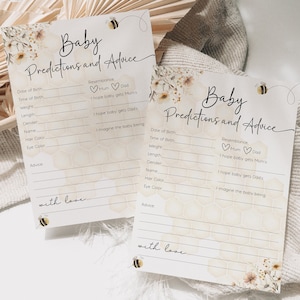 Baby
Predictions and Advice
Date of Birth:
Time of Birth:
Resemblance:
Mum Dad
Weight:
I hope baby gets Mum's:
Length:
I hope baby gets Dad's:
Name:
Hair Color:
I imagine the baby being:
Eye Color:
Advice:
with love
Baby
Predictions and Advice
Date of Birth:
Time of Birth:
Resemblance:
Mum Dad
Weight:
I hope baby gets Mum's:
Length:
I hope baby gets Dad's:
Name:
Hair Color:
I imagine the baby being:
Eye Color:
Advice:
with love